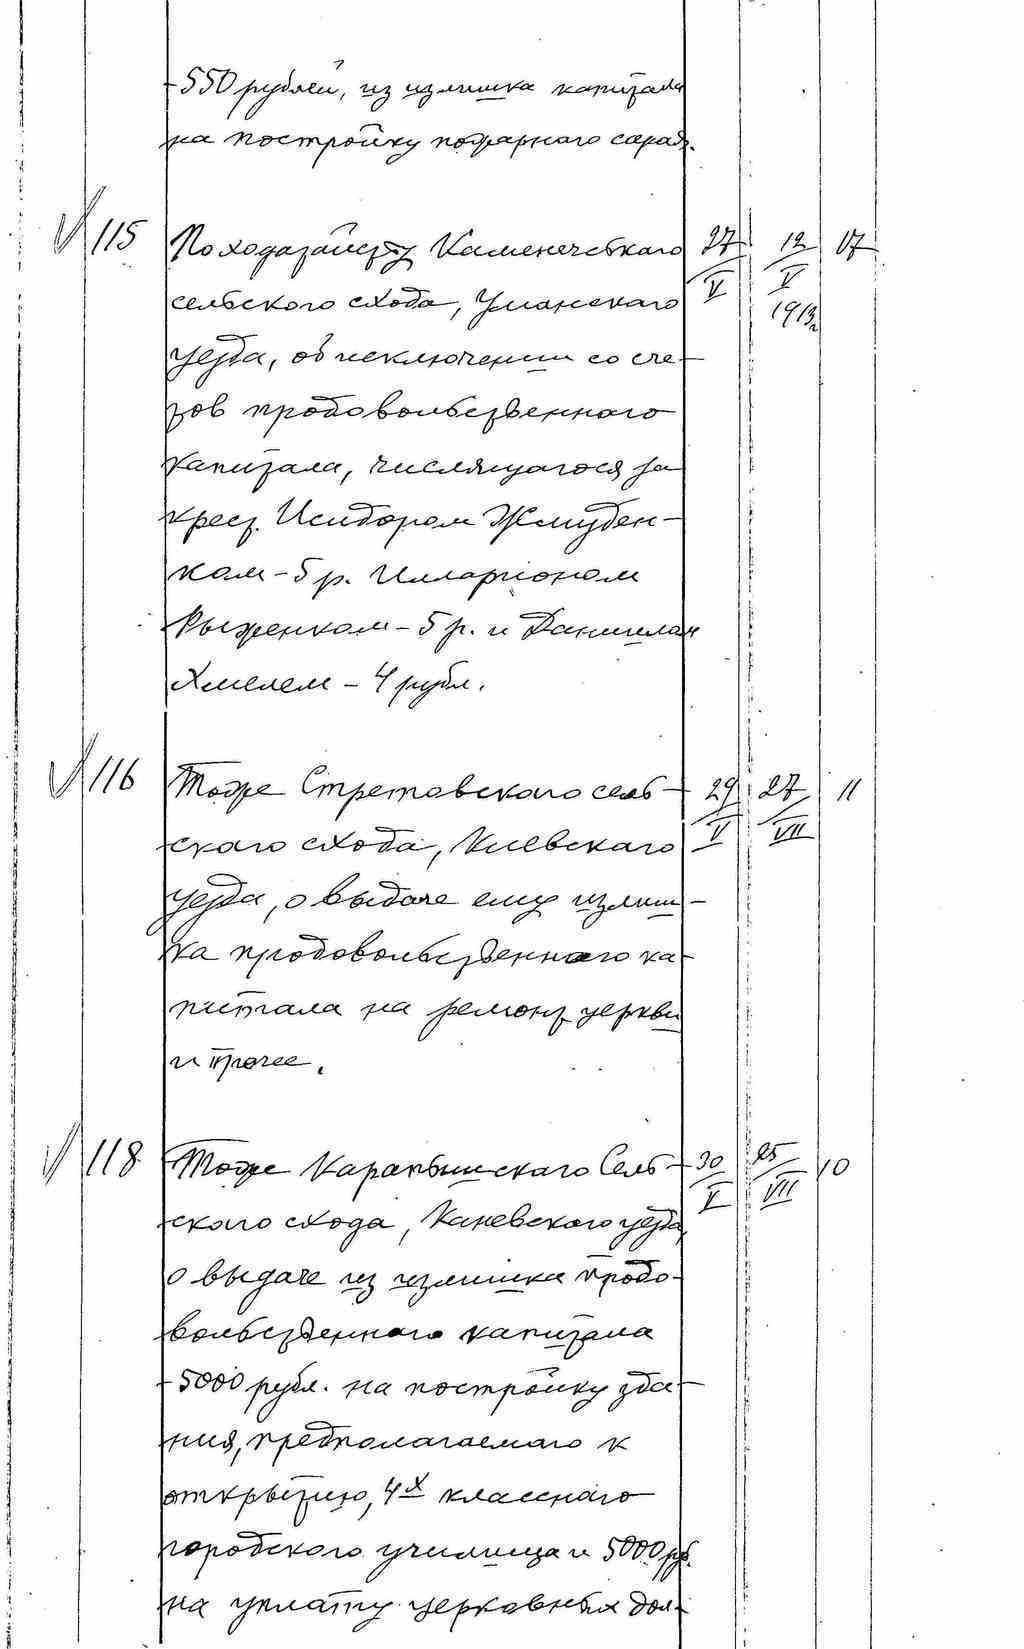 550 рублей, из излишка капитала
на постройку пожарного сарая.
115 По ходатайству Каменечеткаго 27/V 12/V 1913г. 17
сельского схода, Уманскаго
уезда, об исключении со сче-
тов продовольственного
капитала, числящагося за
крест. Исидором Жмуден-
ком - 5 р. Илларіоном
Рыженком - 5 р. и Даниилом
Хмелем - 4 рубл.
116 Тоже Стретовского сель- 29/V 27/VII 11
ского схода, Киевскаго
уезда, о выдаче ему излиш-
ка продовольственного ка-
питала на ремонт церкви
и прочее.
118 Тоже Карапышскаго Сель- 30/V 25/VII 10
ского схода, Каневского уезда,
о выдаче из излишка продо-
вольственного капитала
5000 рубл. на постройку зда-
ния, предполагаемаго к
открытию, 4х класснаго
городского училища и 5000 руб.
на уплату церковных дол-